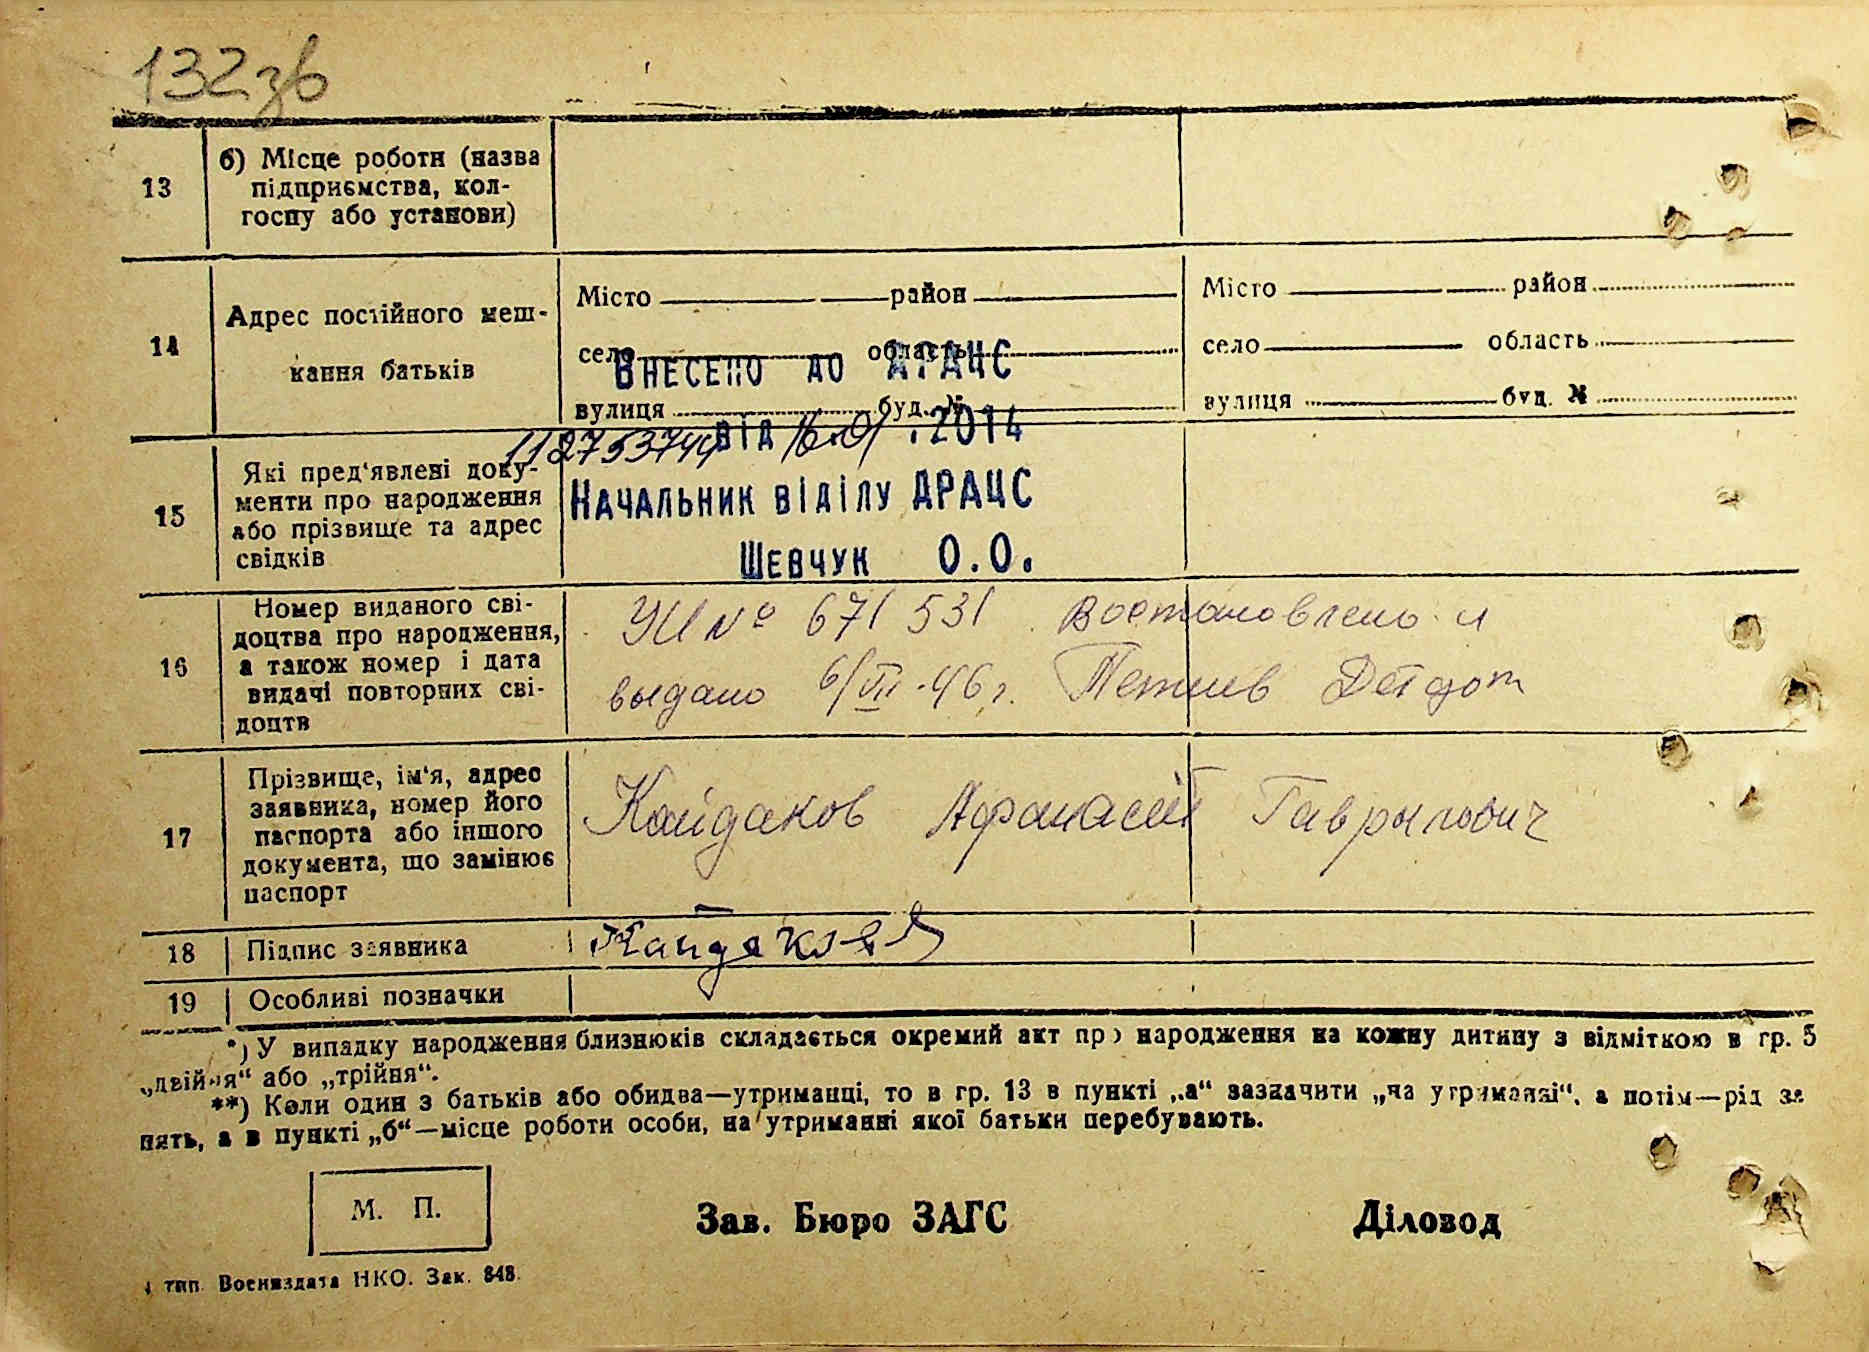 132 зв
13
б) Місце роботи (назва
підприємства, кол-
госпу або установи)
14
Адрес постійного меш-
кання батьків
Місто район
село область
вулиця буд. №
Місто район
село область
вулиця буд. №
Внесено до ДРАЦС
112753744 від 16.01.2014
Начальник віділу ДРАЦС
Шевчук О.О.
15
Які пред'явлені доку-
менти про народження
або прізвище та адрес
свідків
16
Номер виданого сві-
доцтва про народження,
а також номер і дата
видачі повторних сві-
доцтв
№ 671531 Востановлено и
выдано 6/VII-46 г.
17
Прізвище, ім'я, адрес
заявника, номер його
паспорта або іншого
документа, що замінює
паспорт
Кайдаков Афанасий Гаврылович
18
Підпис заявника
Кайдаков
19
Особливі позначки
*) У випадку народження близнюків складається окремий акт про народження на кожну дитину з відміткою в гр. 5
„двійня“ або „трійня“.
**) Коли один з батьків або обидва—утриманці, то в гр. 13 в пункті „а“ зазначити „на утриманні“, а потім—рід за
нять, а в пункті „б“—місце роботи особи, на утриманні якої батьки перебувають.
М. П.
Зав. Бюро ЗАГС
Діловод
тип. Воениздата НКО. Зак. 848.